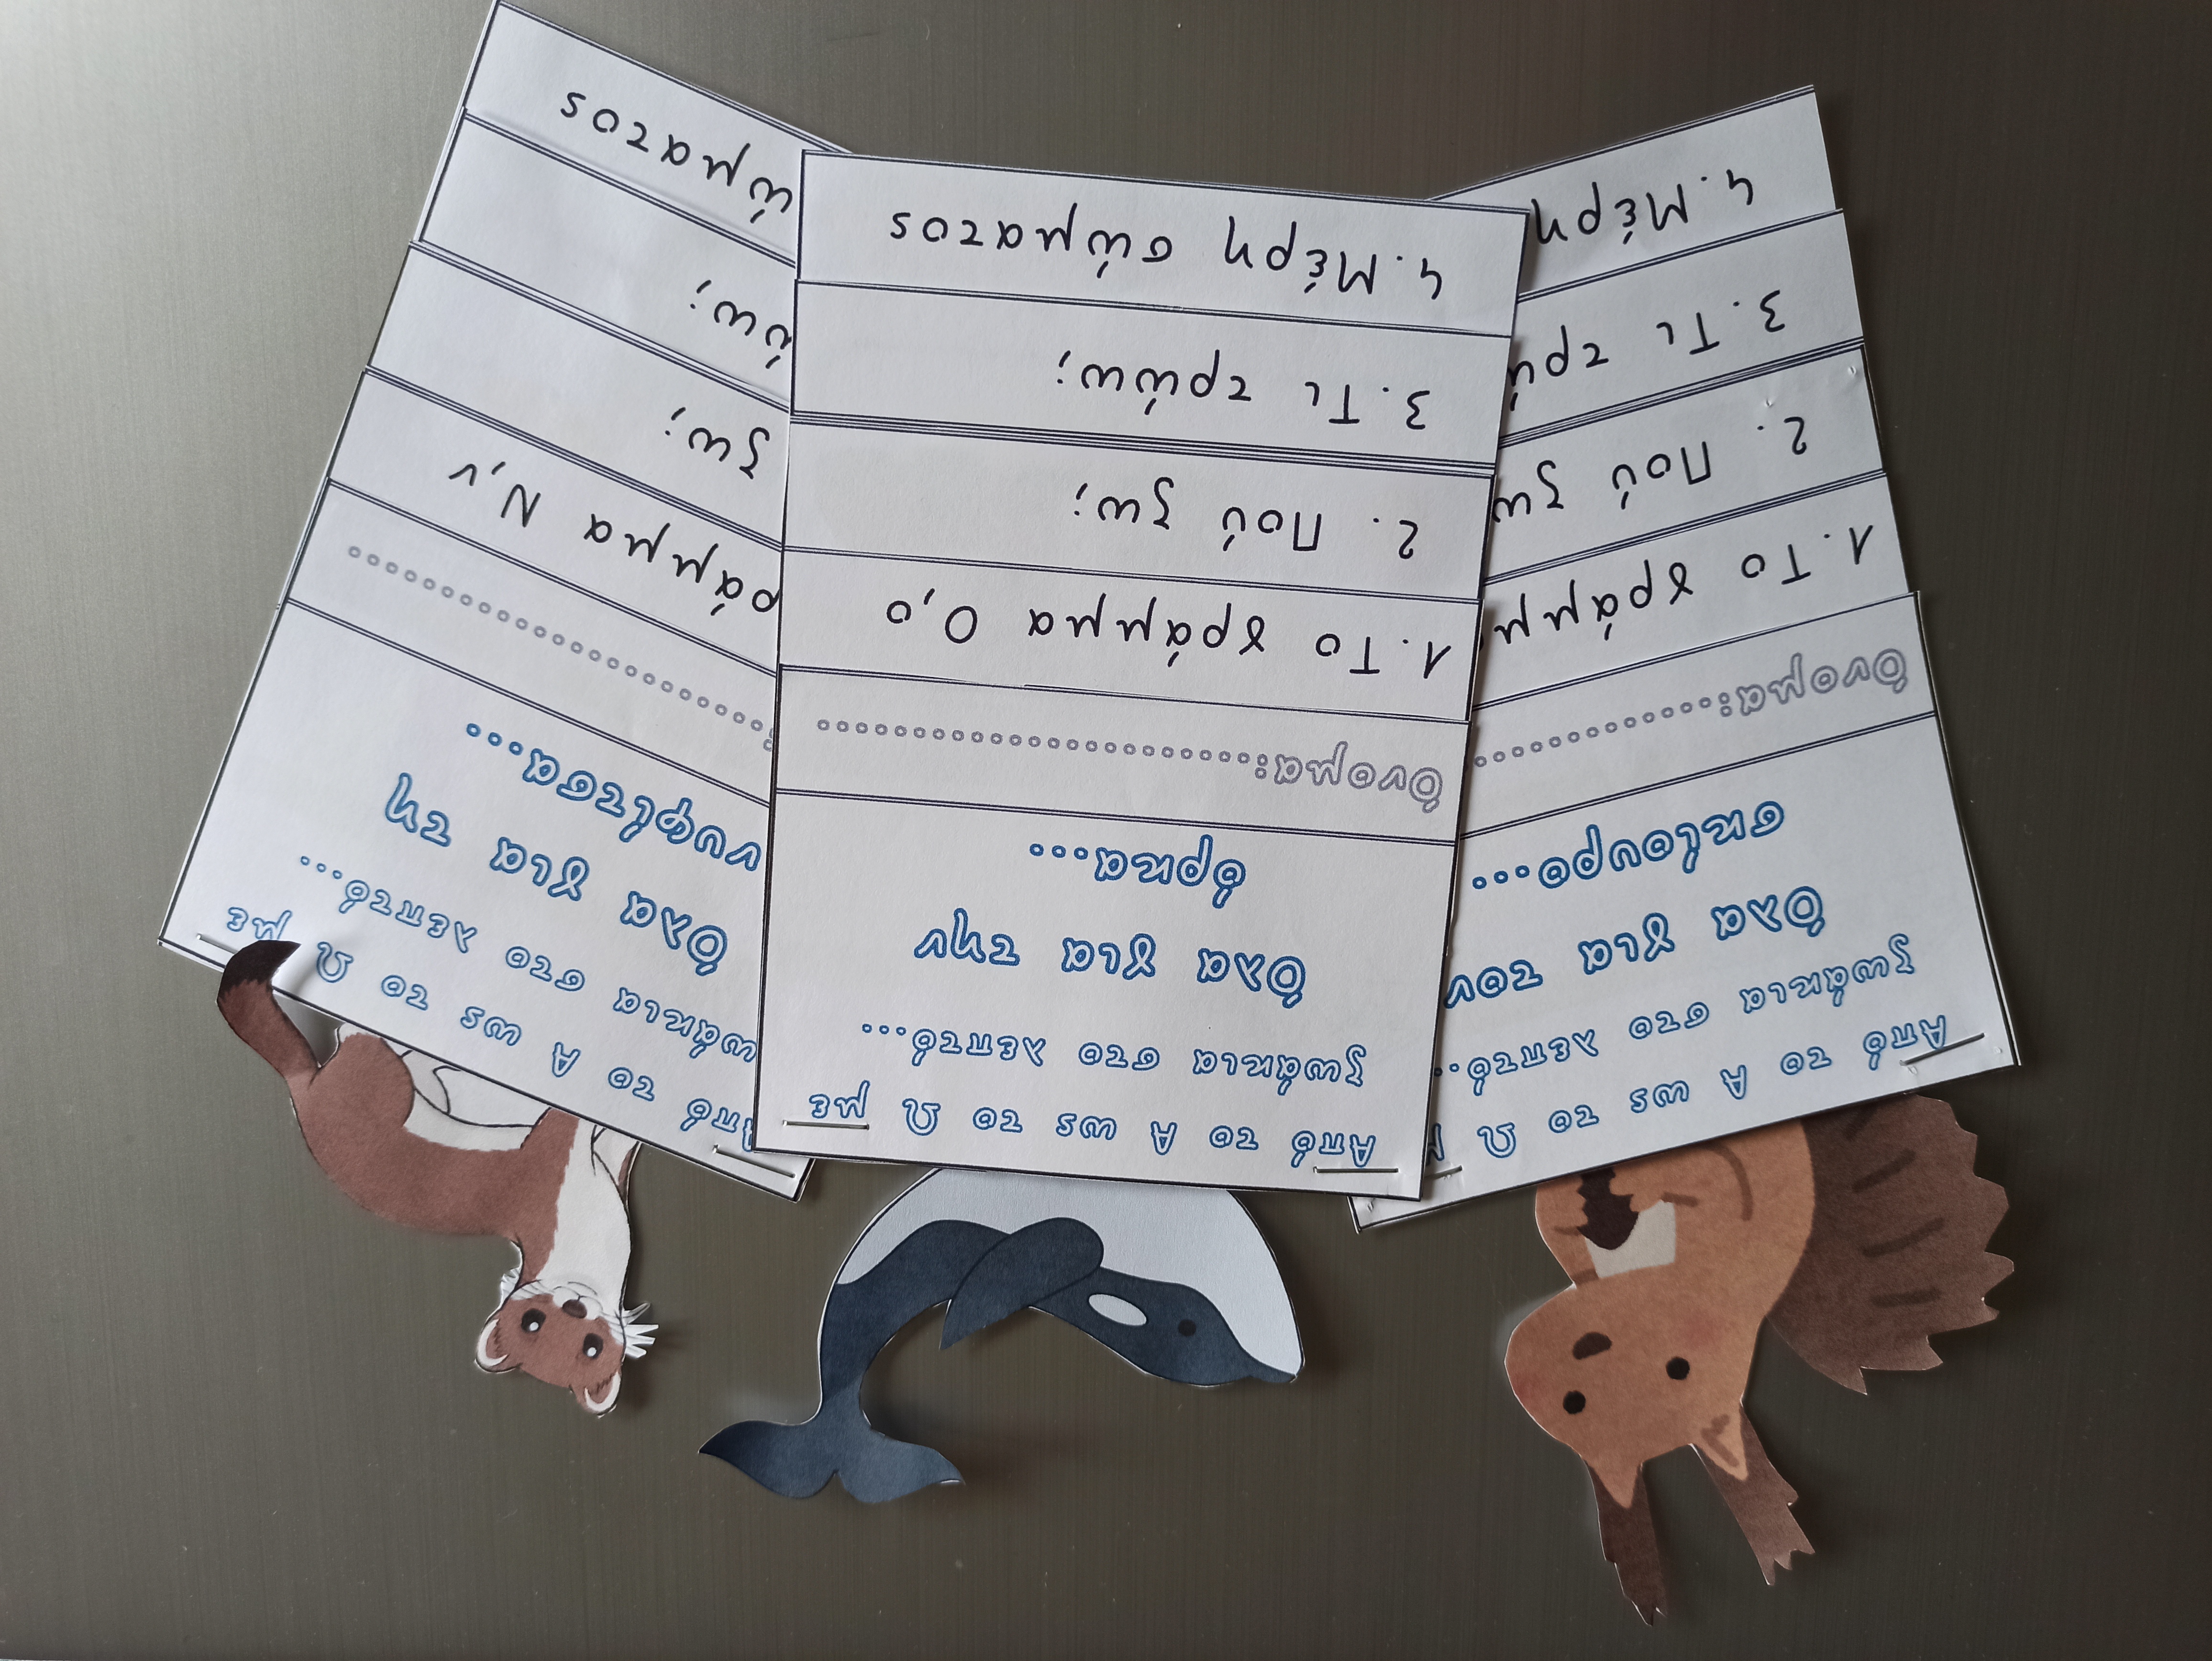 Από το Α ως το Ω
ζωάκια στο λεπτό...
Όλα για τον
σκίουρο...
Όνομα:............
1. Το γράμμ
2. Πού ζω
3. Τι τρώ
4. Μέρη
Από το Α ως το Ω με
ζωάκια στο λεπτό...
Όλα για την
όρκα...
Όνομα:........................
1. Το γράμμα Ο,ο
2. Πού ζω;
3. Τι τρώω;
4. Μέρη σώματος
Από το Α ως το Ω με
ωάκια στο λεπτό...
Όλα για τη
νυφίτσα...
:........................
ράμμα Ν,ν
ζω;
ώω;
ώματος